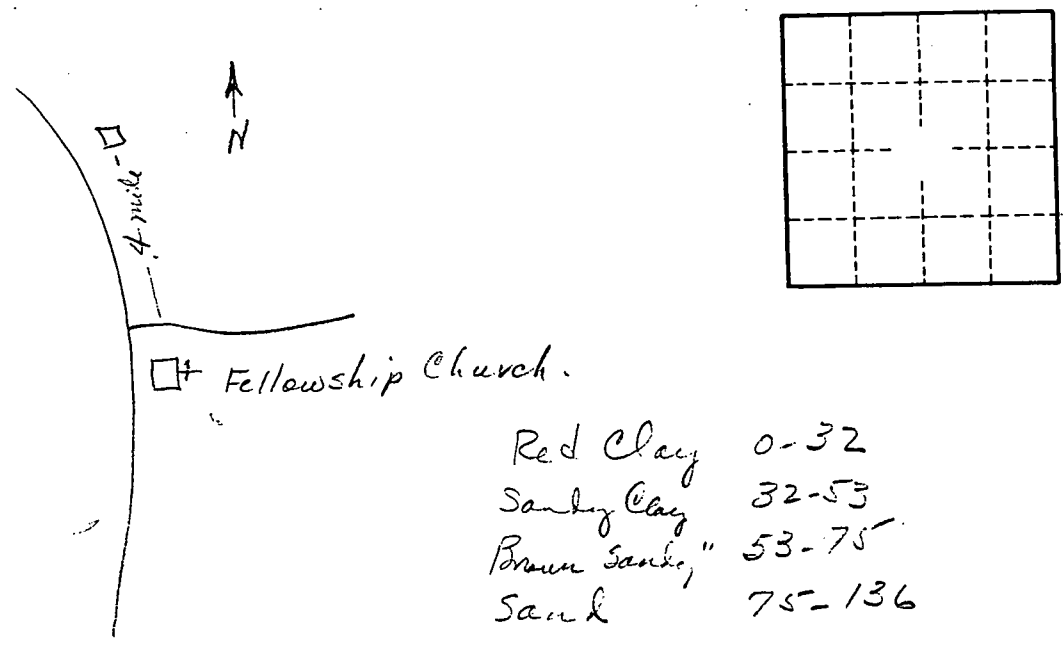 N
.4 mile
Fellowship Church.
Red Clay 0-32
Sandy Clay 32-53
Brown Sandy " 53-75
Sand 75-136